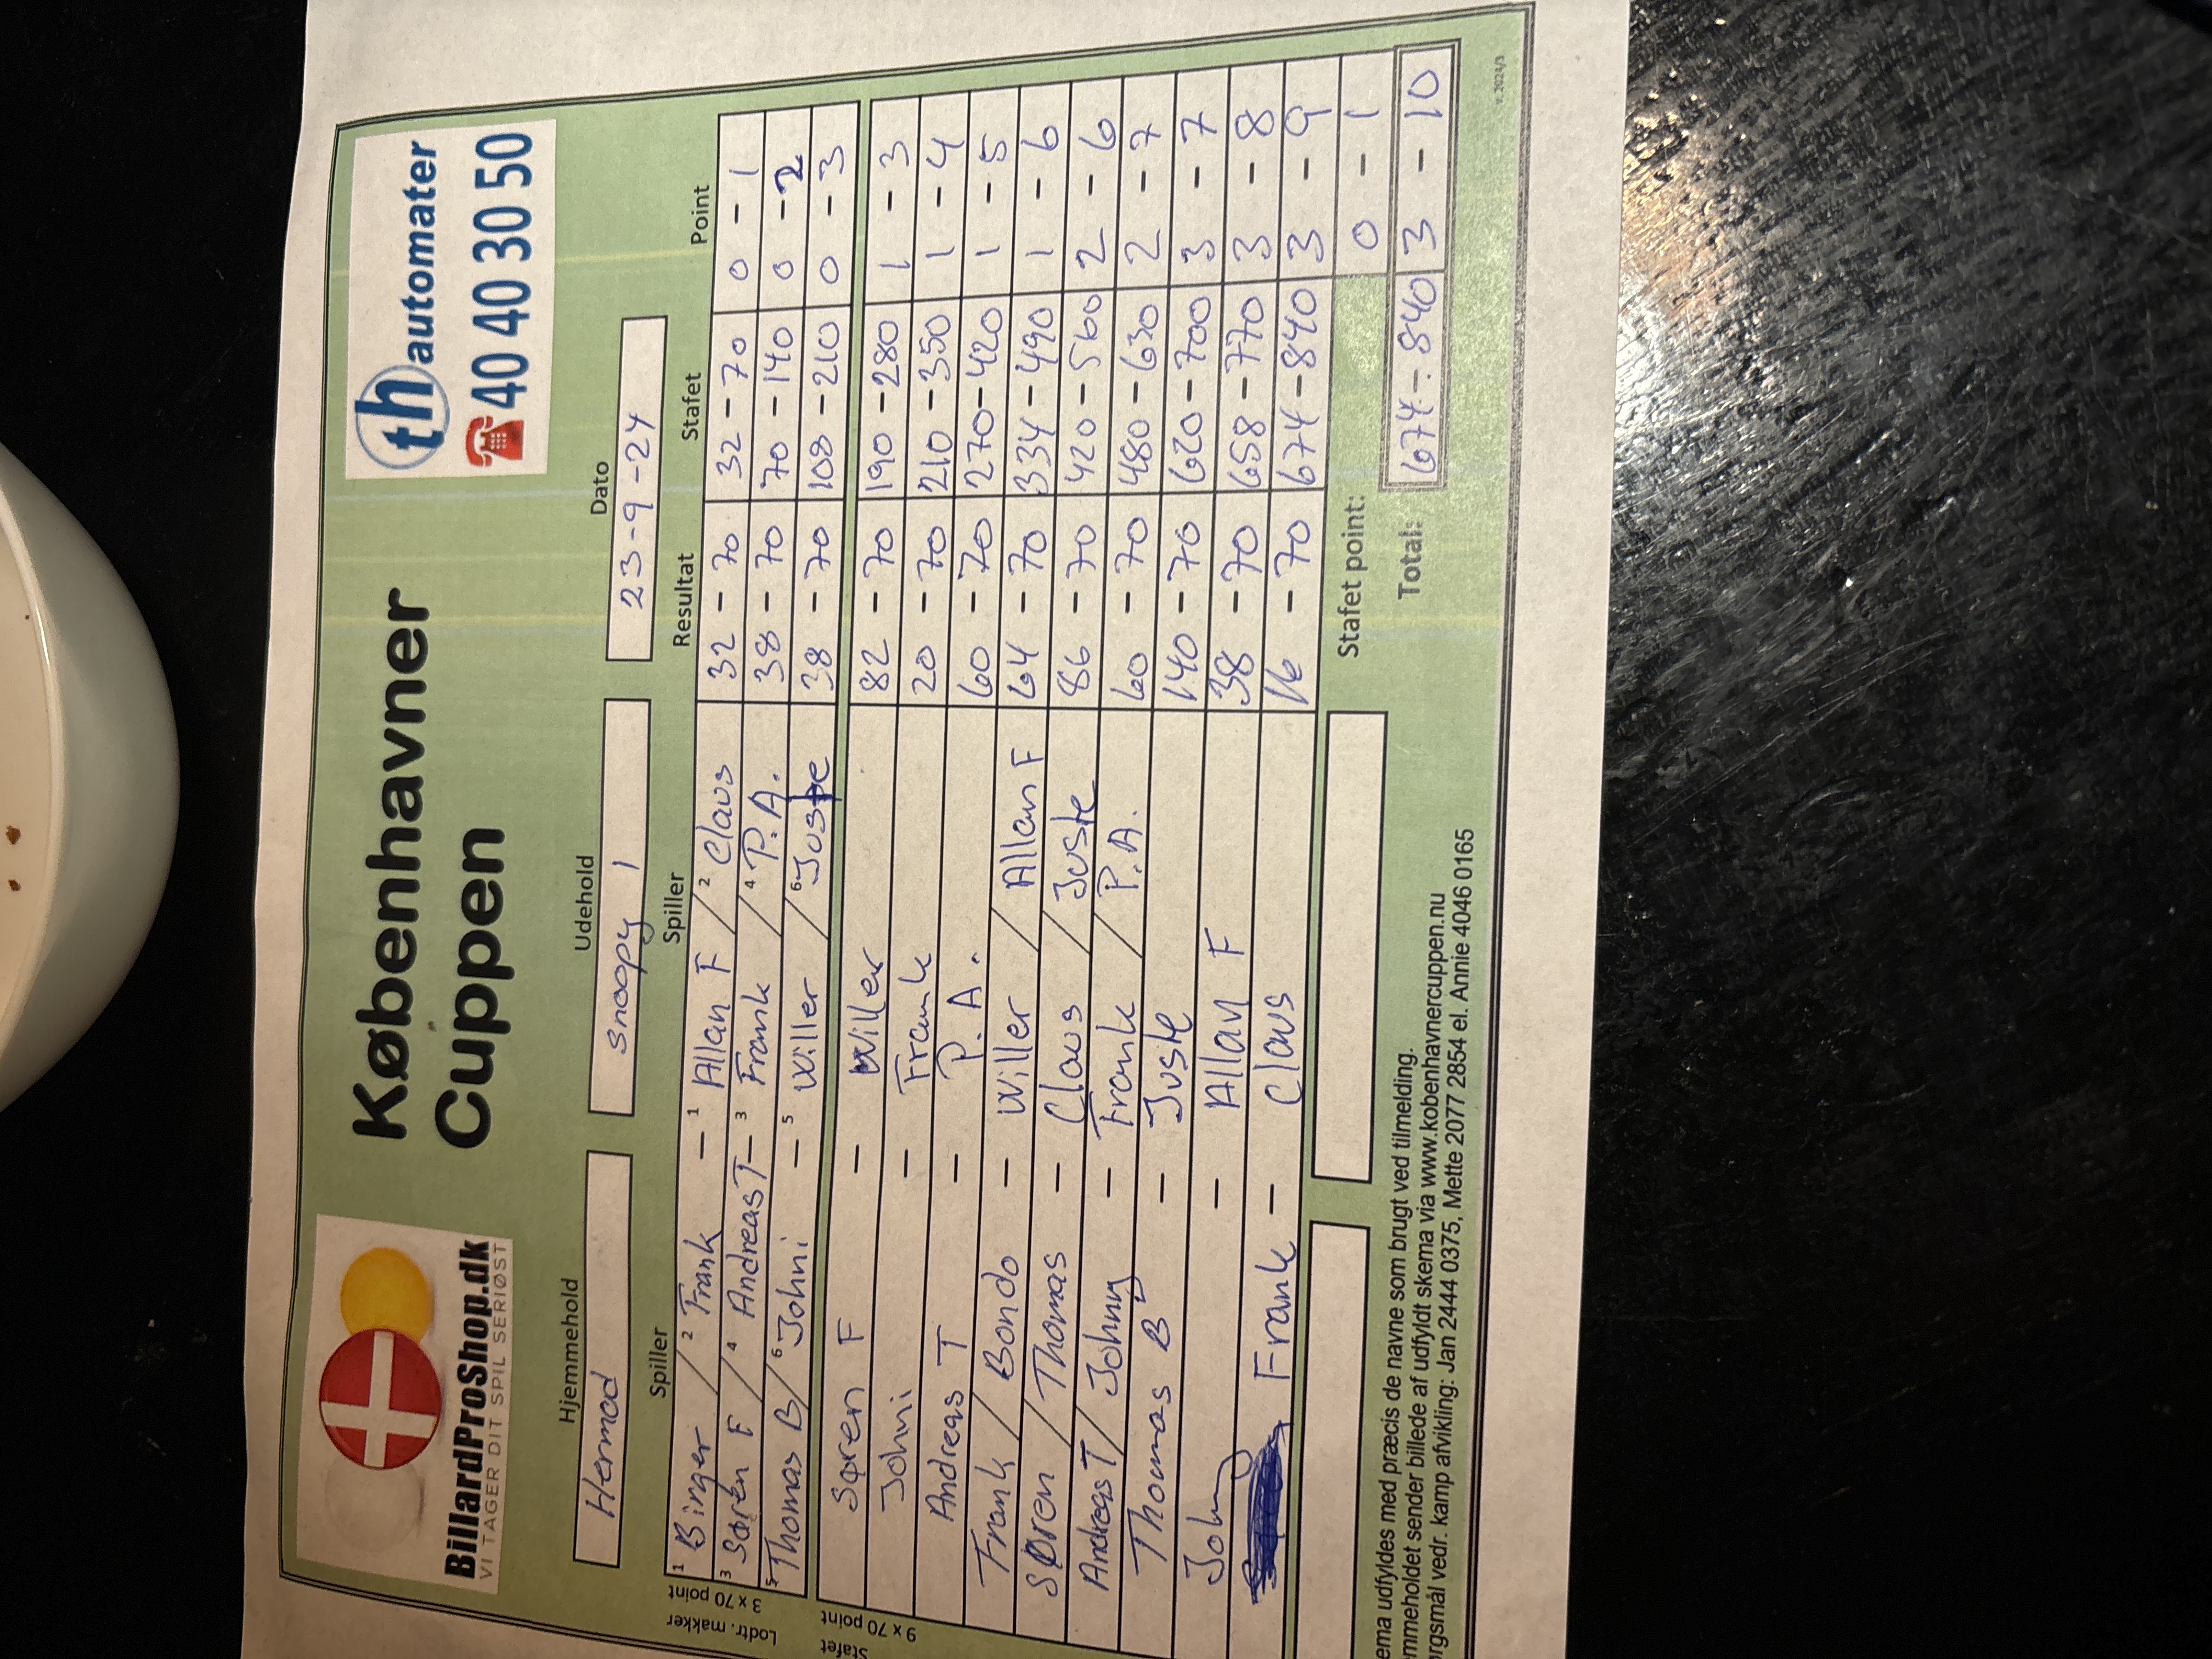 BillardProShop.dk
VI TAGER DIT SPIL SERIØST
Københavner
Cuppen
th automater
40 40 30 50
Hjemmehold Udehold Dato
Hermod snoopy 1 23-9-24
Spiller Spiller Resultat Stafet Point
Lodtr. makker
3 x 70 point
1 Birger / 2 Frank - 1 Allan F / 2 Claus 32 - 70 32 - 70 0 - 1
3 Søren F / 4 Andreas T - 3 Frank / 4 P.A. 38 - 70 70 - 140 0 - 2
5 Thomas B / 6 Johni - 5 Willer / 6 Juste 38 - 70 108 - 210 0 - 3
Stafet
9 x 70 point
Søren F - Willer 82 - 70 190 - 280 1 - 3
Johni - Frank 20 - 70 210 - 350 1 - 4
Andreas T - P.A. 60 - 70 270 - 420 1 - 5
Frank / Bondo - Willer / Allan F 64 - 70 334 - 490 1 - 6
Søren / Thomas - Claus / Juste 86 - 70 420 - 560 2 - 6
Andreas T / Johny - Frank / P.A. 60 - 70 480 - 630 2 - 7
Thomas B - Juste 140 - 70 620 - 700 3 - 7
Johny - Allan F 38 - 70 658 - 770 3 - 8
Frank - Claus 16 - 70 674 - 840 3 - 9
Stafet point: 0 - 1
Total: 674 - 840 3 - 10
ema udfyldes med præcis de navne som brugt ved tilmelding.
mmeholdet sender billede af udfyldt skema via www.kobenhavnercuppen.nu
ørgsmål vedr. kamp afvikling: Jan 2444 0375, Mette 2077 2854 el. Annie 4046 0165
v. 2024/3